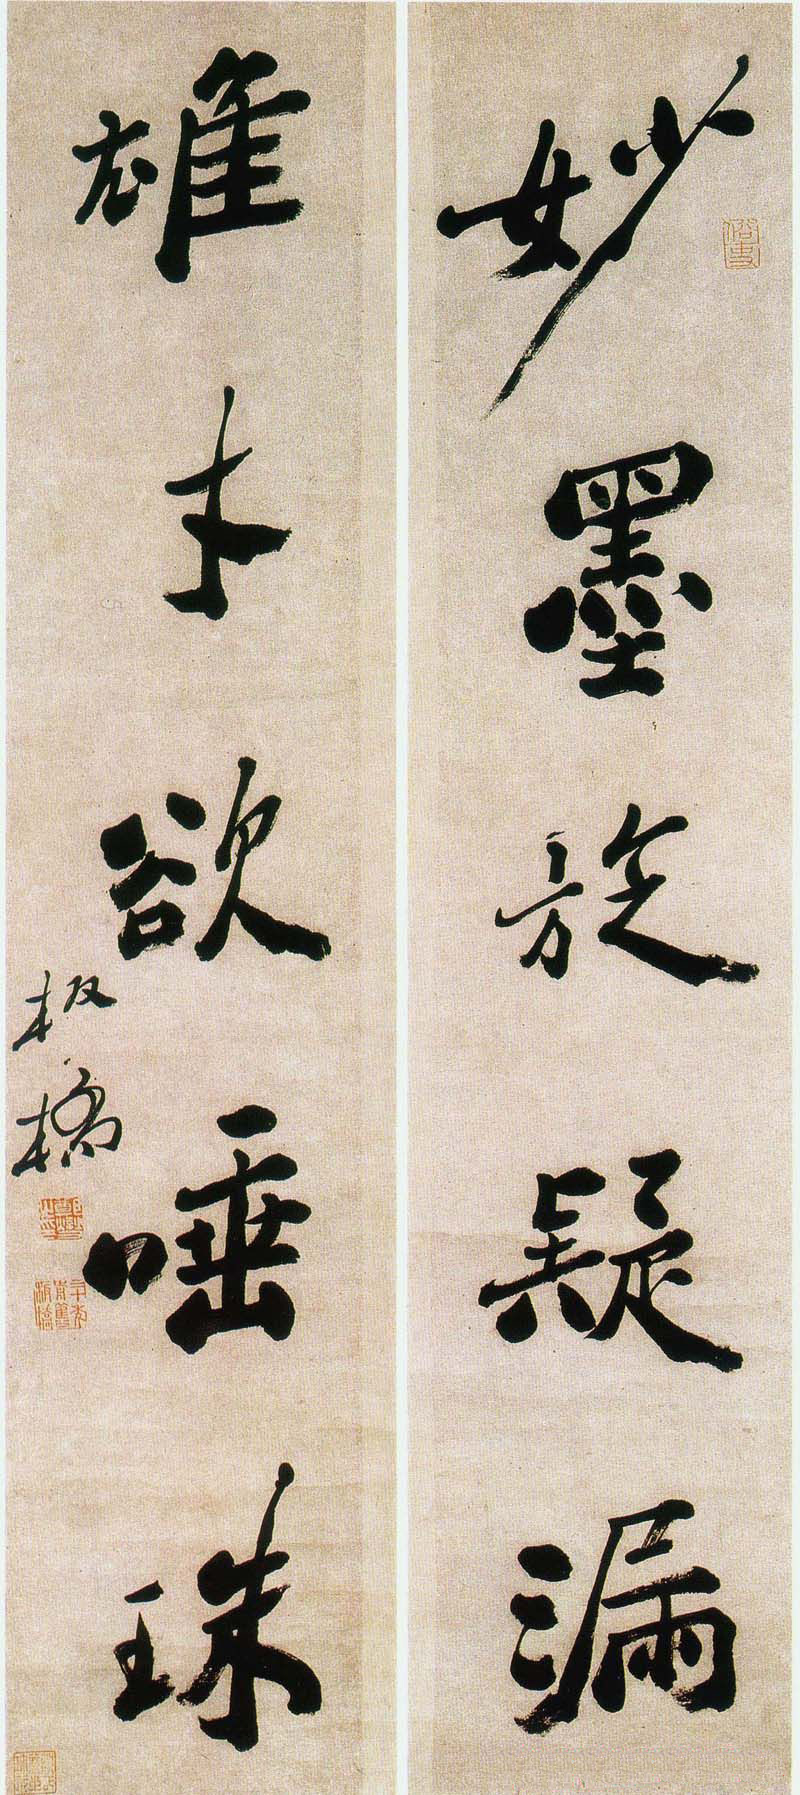 妙墨旋疑漏
俗吏
雄才欲唾珠
板橋